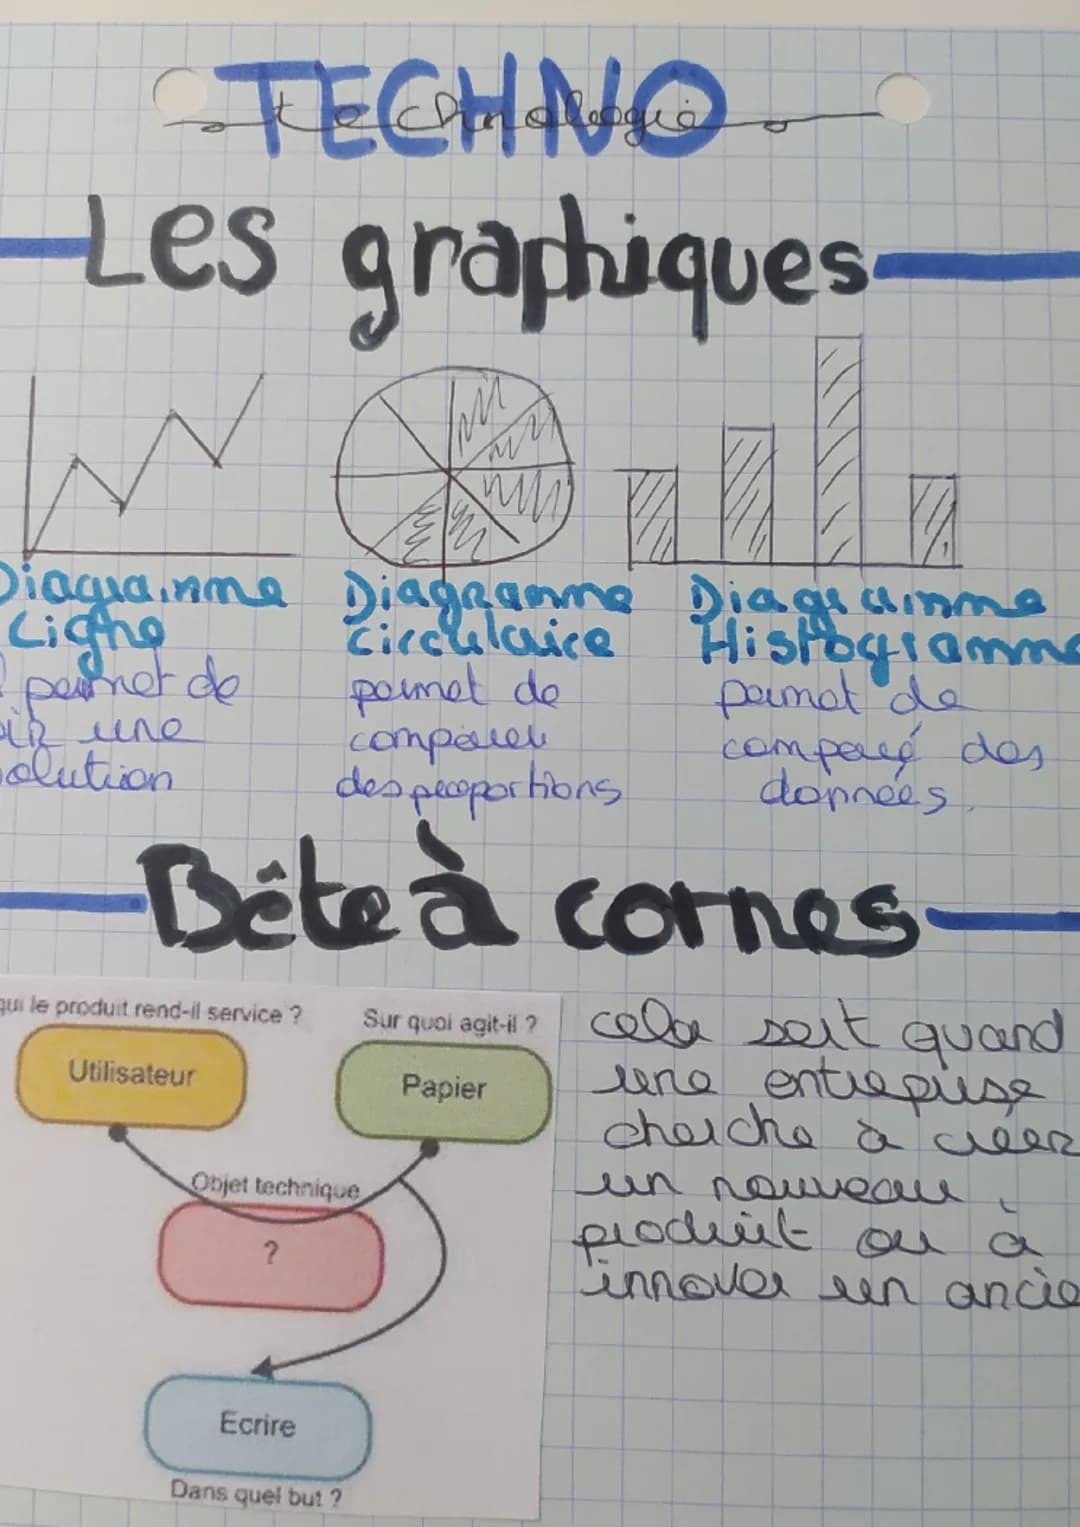 TECHNO
technologie
Les graphiques
Diagramme Diagramme Diagramme
Ligne Circulaire Histogramme
permet de permet de permet de
une comparer comparé des
olution des proportions données.
Bête à cornes
qui le produit rend-il service ? Sur quoi agit-il ?
Utilisateur Papier
Objet technique
?
Ecrire
Dans quel but ?
cela sert quand
une entreprise
cherche à créer
un nouveau
produit ou à
innover un ancie